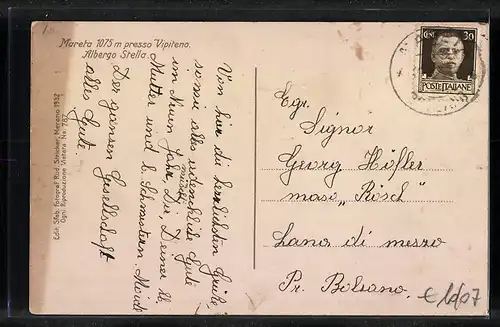 Mareta 1075 m presso Vipiteno.
Albergo Stella.
Von hier die herzlichsten Grüße,
sowie alles erdenkliche Gute
im Neuen Jahr Dir, Deiner lb.
Mutter und d. Schwestern.
Der ganzen Gesellschaft
alles Gute.
Ediz. Stab. Fotograf. Rud. Stricker, Merano 1932
Ogni Riproduzione vietata No. 757
CENT 30
POSTE ITALIANE
Egr.
Signor
Georg Höfler
maso "Rösch"
Lana di mezzo
Pr. Bolzano.